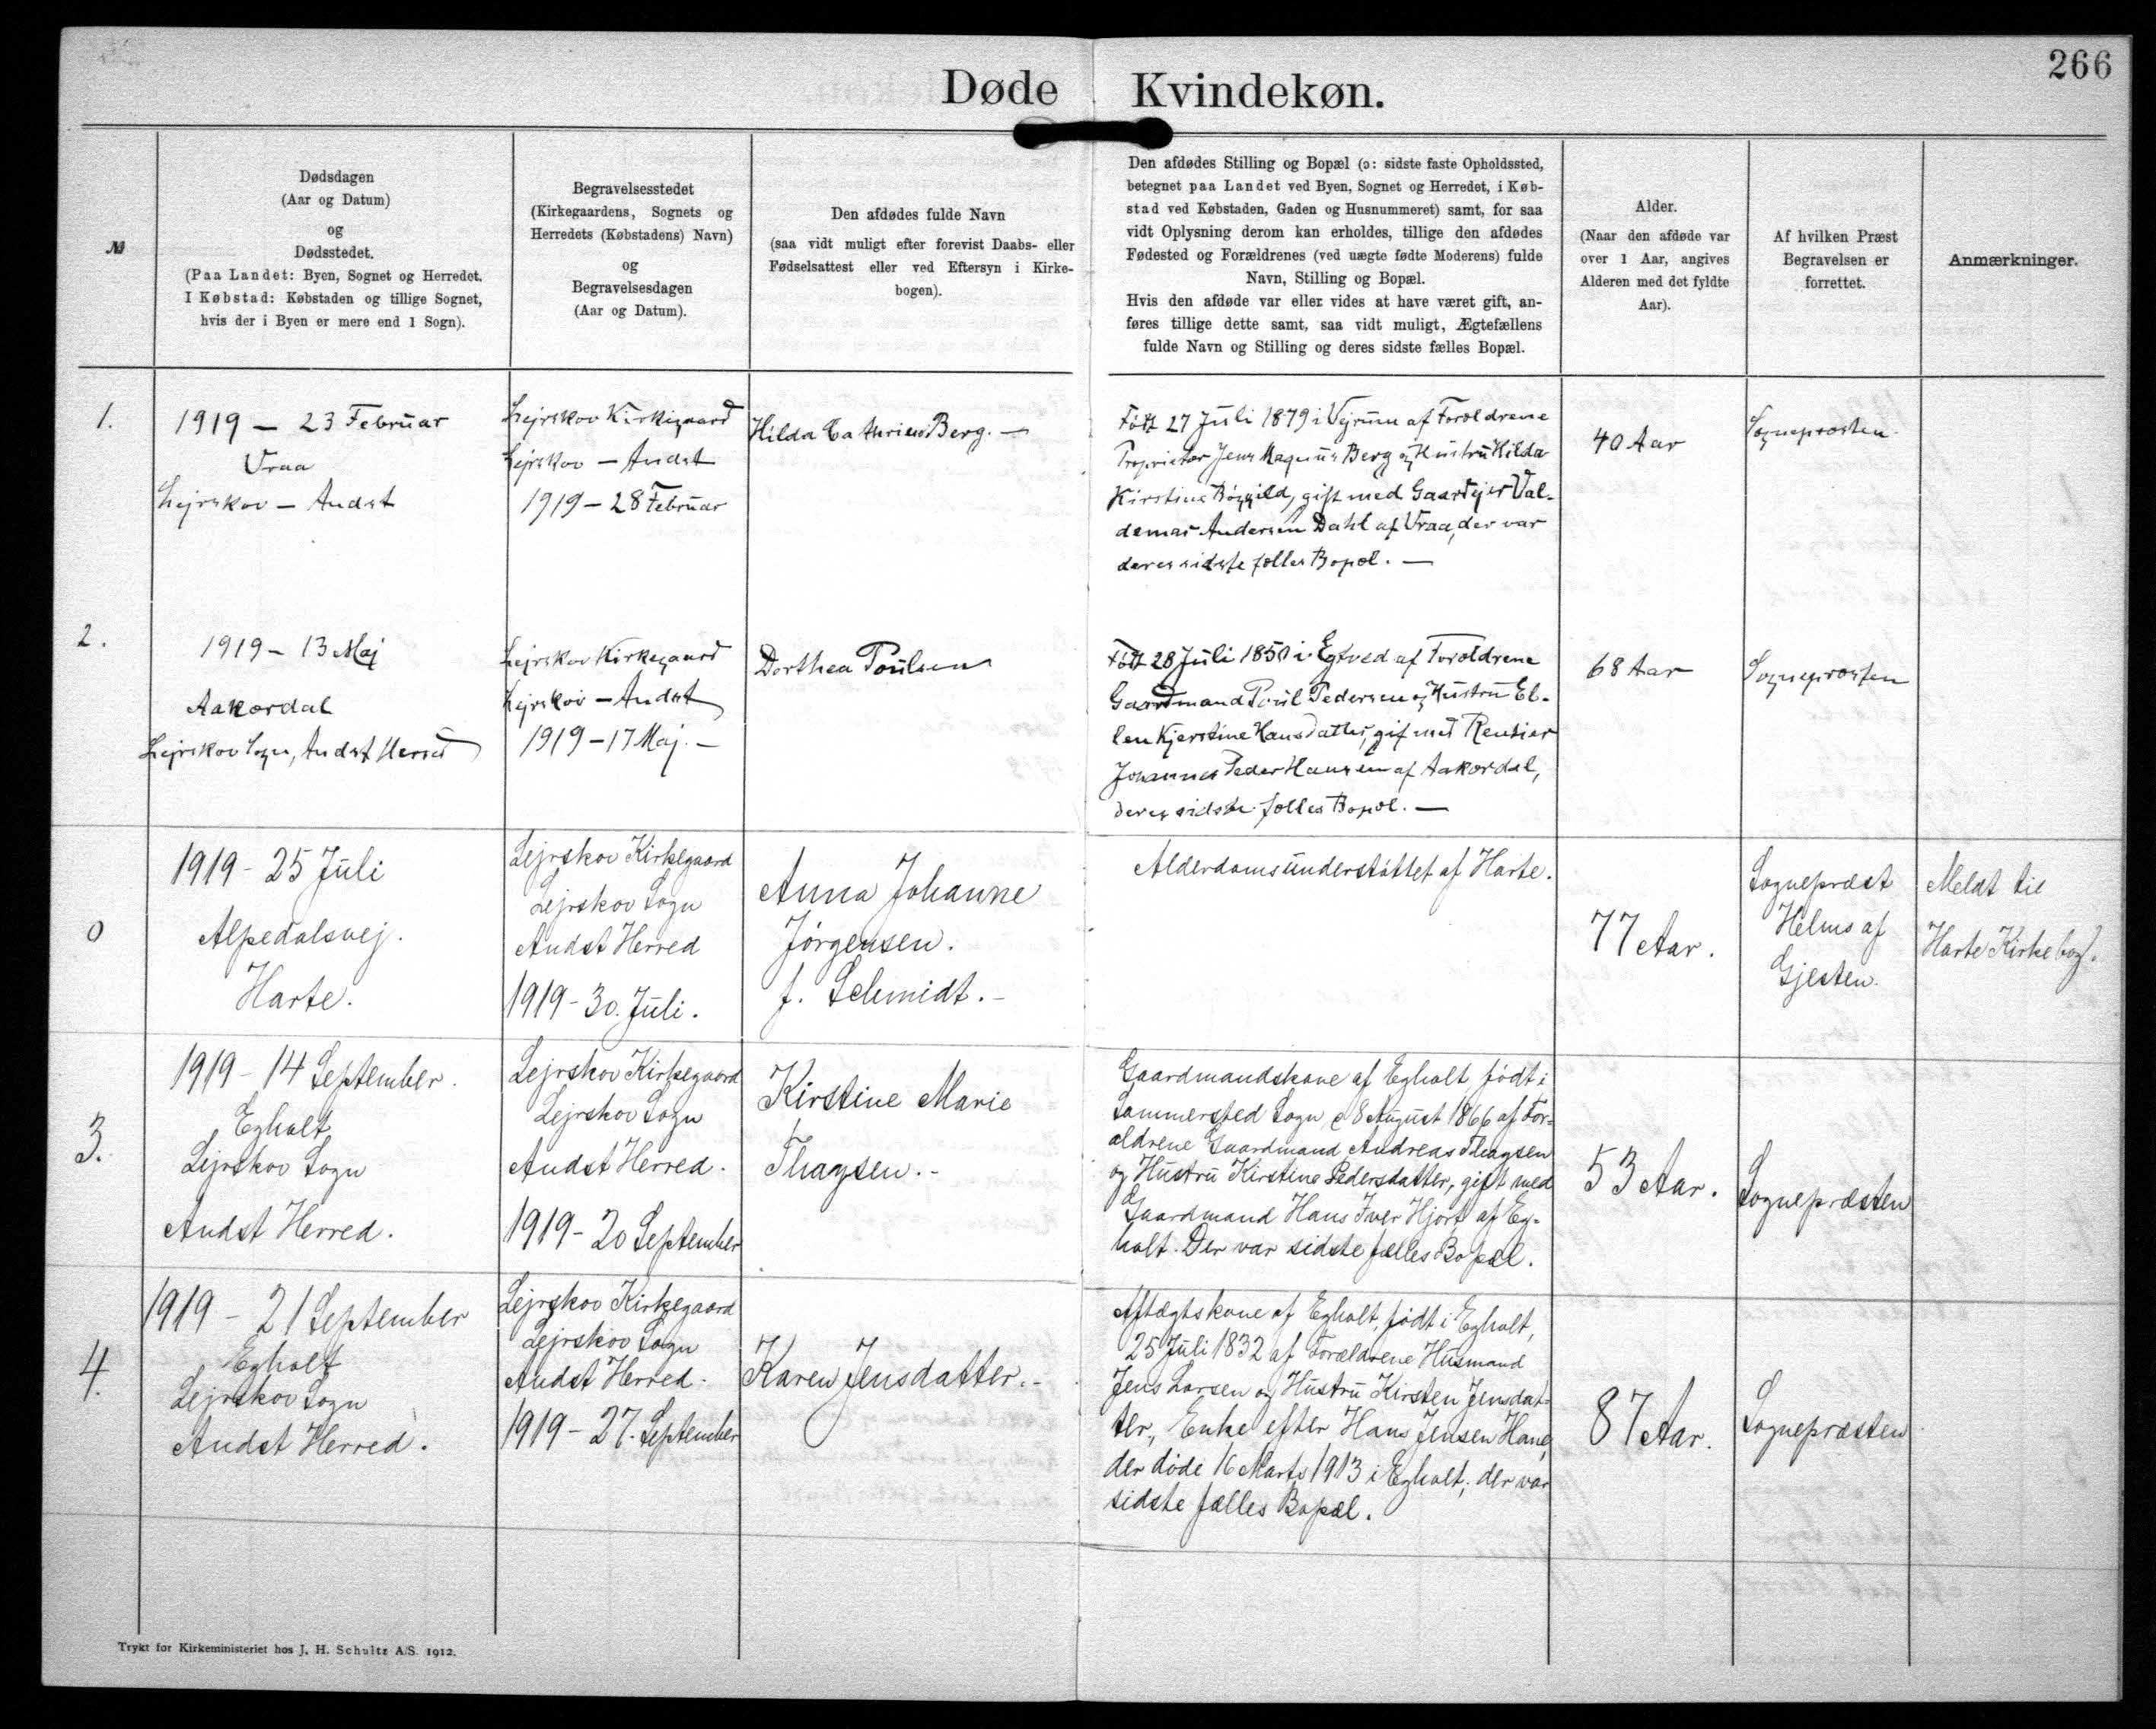 266
Døde Kvindekøn.
№
Dødsdagen
(Aar og Datum)
og
Dødsstedet.
(Paa Landet: Byen, Sognet og Herredet.
I Købstad: Købstaden og tillige Sognet,
hvis der i Byen er mere end 1 Sogn).
Begravelsesstedet
(Kirkegaardens, Sognets og
Herredets (Købstadens) Navn)
og
Begravelsesdagen
(Aar og Datum).
Den afdødes fulde Navn
(saa vidt muligt efter forevist Daabs- eller
Fødselsattest eller ved Eftersyn i Kirke-
bogen).
Den afdødes Stilling og Bopæl (o: sidste faste Opholdssted,
betegnet paa Landet ved Byen, Sognet og Herredet, i Køb-
stad ved Købstaden, Gaden og Husnummeret) samt, for saa
vidt Oplysning derom kan erholdes, tillige den afdødes
Fødested og Forældrenes (ved uægte fødte Moderens) fulde
Navn, Stilling og Bopæl.
Hvis den afdøde var eller vides at have været gift, an-
føres tillige dette samt, saa vidt muligt, Ægtefællens
fulde Navn og Stilling og deres sidste fælles Bopæl.
Alder.
(Naar den afdøde var
over 1 Aar, angives
Alderen med det fyldte
Aar).
Af hvilken Præst
Begravelsen er
forrettet.
Anmærkninger.
1.
1919 – 23 Februar
Vraa
Lejrskov – Andst
Lejrskov Kirkegaard
Lejrskov – Andst
1919 – 28 Februar
Hilda Cathrine Berg. –
Født 27 Juli 1879 i Vejrum af Forældrene
Proprietær Jens Magnus Berg og Hustru Hilda
Kirstine Bøggild, gift med Gaardejer Val-
demar Andersen Dahl af Vraa, der var
deres sidste fælles Bopæl. –
40 Aar
Sognepræsten.
2.
1919 – 13 Maj
Aakærdal
Lejrskov Sogn, Andst Herred
Lejrskov Kirkegaard
Lejrskov – Andst
1919 – 17 Maj. –
Dorthea Poulsen
Født 28 Juli 1850 i Egtved af Forældrene
Gaardmand Poul Pedersen og Hustru El-
len Kjerstine Hansdatter, gif med Rentier
Johannes Peder Hansen af Aakærdal,
deres sidste fælles Bopæl. –
68 Aar
Sognepræsten
0
1919 - 25 Juli
Alpedalsvej.
Harte.
Lejrskov Kirkegaard
Lejrskov Sogn
Andst Herred
1919 - 30. Juli.
Anna Johanne
Jørgensen.
f. Schmidt. -
Alderdomsunderstøttet af Harte.
77 Aar.
Sognepræst
Helms af
Gjesten.
Meldt til
Harte Kirkebog.
3.
1919 - 14 September.
Egholt
Lejrskov Sogn
Andst Herred.
Lejrskov Kirkegaard
Lejrskov Sogn
Andst Herred.
1919 - 20 September
Kirstine Marie
Thaysen. -
Gaardmandskone af Egholt, født i
Sommersted Sogn d 8 August 1866 af For-
ældrene Gaardmand Andreas Thaysen
og Hustru Kirstine Pedersdatter, gift med
Gaardmand Hans Iver Hjort af Eg-
holt. Der var sidste fælles Bopæl.
53 Aar.
Sognepræsten
4.
1919 - 21 September
Egholt
Lejrskov Sogn
Andst Herred.
Lejrskov Kirkegaard
Lejrskov Sogn
Andst Herred.
1919 - 27. September
Karen Jensdatter. -
Aftægtskone af Egholt, født i Egholt,
25 Juli 1832 af Forældrene Husmand
Jens Larsen og Hustru Kirsten Jensdat-
ter, Enke efter Hans Jensen Hane,
der døde 16 Marts 1913 i Egholt; der var
sidste fælles Bopæl.
87 Aar.
Sognepræsten
Trykt for Kirkeministeriet hos J. H. Schultz A/S. 1912.